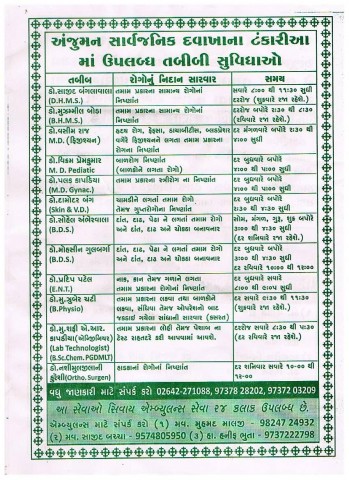 અંજુમન સાર્વજનિક દવાખાના ટંકારીઆ
માં ઉપલબ્ધ તબીબી સુવિધાઓ
તબીબ રોગોનું નિદાન સારવાર સમય
ડો.સાજીદ બંગલાવાલા તમામ પ્રકારના સામાન્ય રોગોનાં સવારે ૮:૦૦ થી ૧૧:૩૦ સુધી
(D.H.M.S.) નિષ્ણાંત દરરોજ (શુક્રવારે રજા રહેશે.)
ડો.મુઝમ્મીલ બોડા તમામ પ્રકારના સામાન્ય રોગોનાં દરરોજ બપોરે ૨:૩૦ થી ૮:૩૦
(B.H.M.S.) નિષ્ણાંત (રવિવારે રજા રહેશે.)
ડો.વસીમ રાજ હૃદય રોગ, ફેફસા, ડાયાબીટીસ, બ્લડપ્રેશર દર મંગળવારે બપોરે ૨:૩૦ થી
M.D. (ફિઝીશ્યન) વગેરે ફિજીશ્યનને લગતા તમામ પ્રકારના ૪:૦૦ સુધી
રોગના નિષ્ણાંત
ડો.વિક્રમ પ્રેમકુમાર બાળરોગ નિષ્ણાંત દર બુધવારે બપોરે
M. D. Pediatric (બાળકોને લગતા રોગો) ૪:૦૦ થી ૫:૦૦ સુધી
ડો.પલક કાપડિયા તમામ પ્રકારના સ્ત્રીરોગ ના નિષ્ણાંત દર બુધવારે બપોરે
(M.D. Gynac.) ૪:૦૦ થી ૫:૦૦ સુધી
ડો.દામોદર બંગ ચામડીને લગતા તમામ રોગો દર ગુરૂવારે બપોરે
(Skin & V.D.) તેમજ ગુપ્તરોગોના નિષ્ણાંત ૩:૩૦ થી ૪:૩૦ સુધી
ડો.સોહેલ અંભેરવાલા દાંત, દાઢ, પેઢા ને લગતા તમામ રોગો સોમ, મંગળ, ગુરૂ, શુક્ર બપોરે
(B.D.S.) અને દાંત, દાઢ અને ચોકઠા બનાવનાર ૩:૦૦ થી ૪:૩૦ સુધી
(દર શનિવારે રજા રહેશે.)
ડો.મોહસીન ગુલબર્ગા દાંત, દાઢ, પેઢા ને લગતા તમામ રોગો દર બુધવારે બપોરે
(B.D.S.) અને દાંત, દાઢ અને ચોકઠા બનાવનાર ૩:૦૦ થી ૪:૩૦ સુધી
દર રવિવારે ૧૦:૦૦ થી ૧૨:૦૦
ડો.પ્રદિપ પટેલ નાક, કાન તેમજ ગળાને લગતા દર બુધવારે સવારે
(E.N.T.) તમામ રોગોનાં નિષ્ણાંત
ડો.મુ.ઝુબેર ચટી તમામ પ્રકારના લકવા તથા બાળકોને દર સવારે
(B.Physio) લકવા, સંધિવા તેમજ ઓપરેશનો બાદ (શુક્રવારે રજા રહેશે.)
જકડાઈ ગયેલા સાંધાની સારવાર (કસરત)
ડો.મુ.શફી એ.આર. તમામ પ્રકારના લોહી તેમજ પેશાબ ના દરરોજ સવારે ૮:૩૦ થી ૫:૩૦
કાપડીયા(એન્જિનિયર) ટેસ્ટ રાહતદરે કરી આપવામાં આવશે. (દર રવિવારે રજા રહેશે.)
(Lab Technologist)
(B.Sc.Chem. PGDMLT)
હાડકાનાં રોગોનાં નિષ્ણાંત દર શનિવારે સવારે ૧૦:૦૦ થી
કુરેશી(Ortho. Surgen) ૧૨:૦૦
વધુ જાણકારી માટે સંપર્ક કરો 02642-271088, 97378 28202, 97372 03209
આ સેવાઓ સિવાય એમ્બ્યુલન્સ સેવા ૨૪ કલાક ઉપલબ્ધ છે.
એમ્બ્યુલન્સ માટે સંપર્ક કરો (૧) મવ. મુહમદ માલજી - 98247 24932
(૨) મવ. સાજીદ બચ્ચા - 9574805950 (૩) હા. હનીફ ભુતા - 9737222798